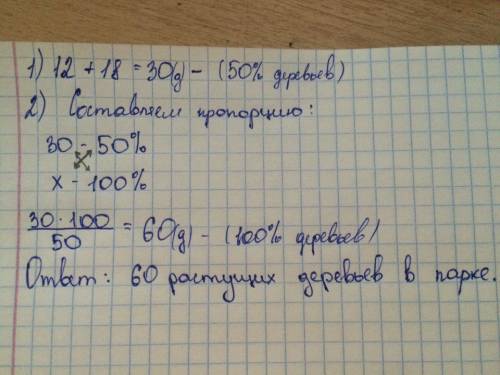 1) 12 + 18 = 30(д) - (50% деревьев)
2) Составляем пропорцию:
30 - 50%
x - 100%
30 · 100
50
= 60(д) - (100% деревьев)
Ответ: 60 растущих деревьев в парке.